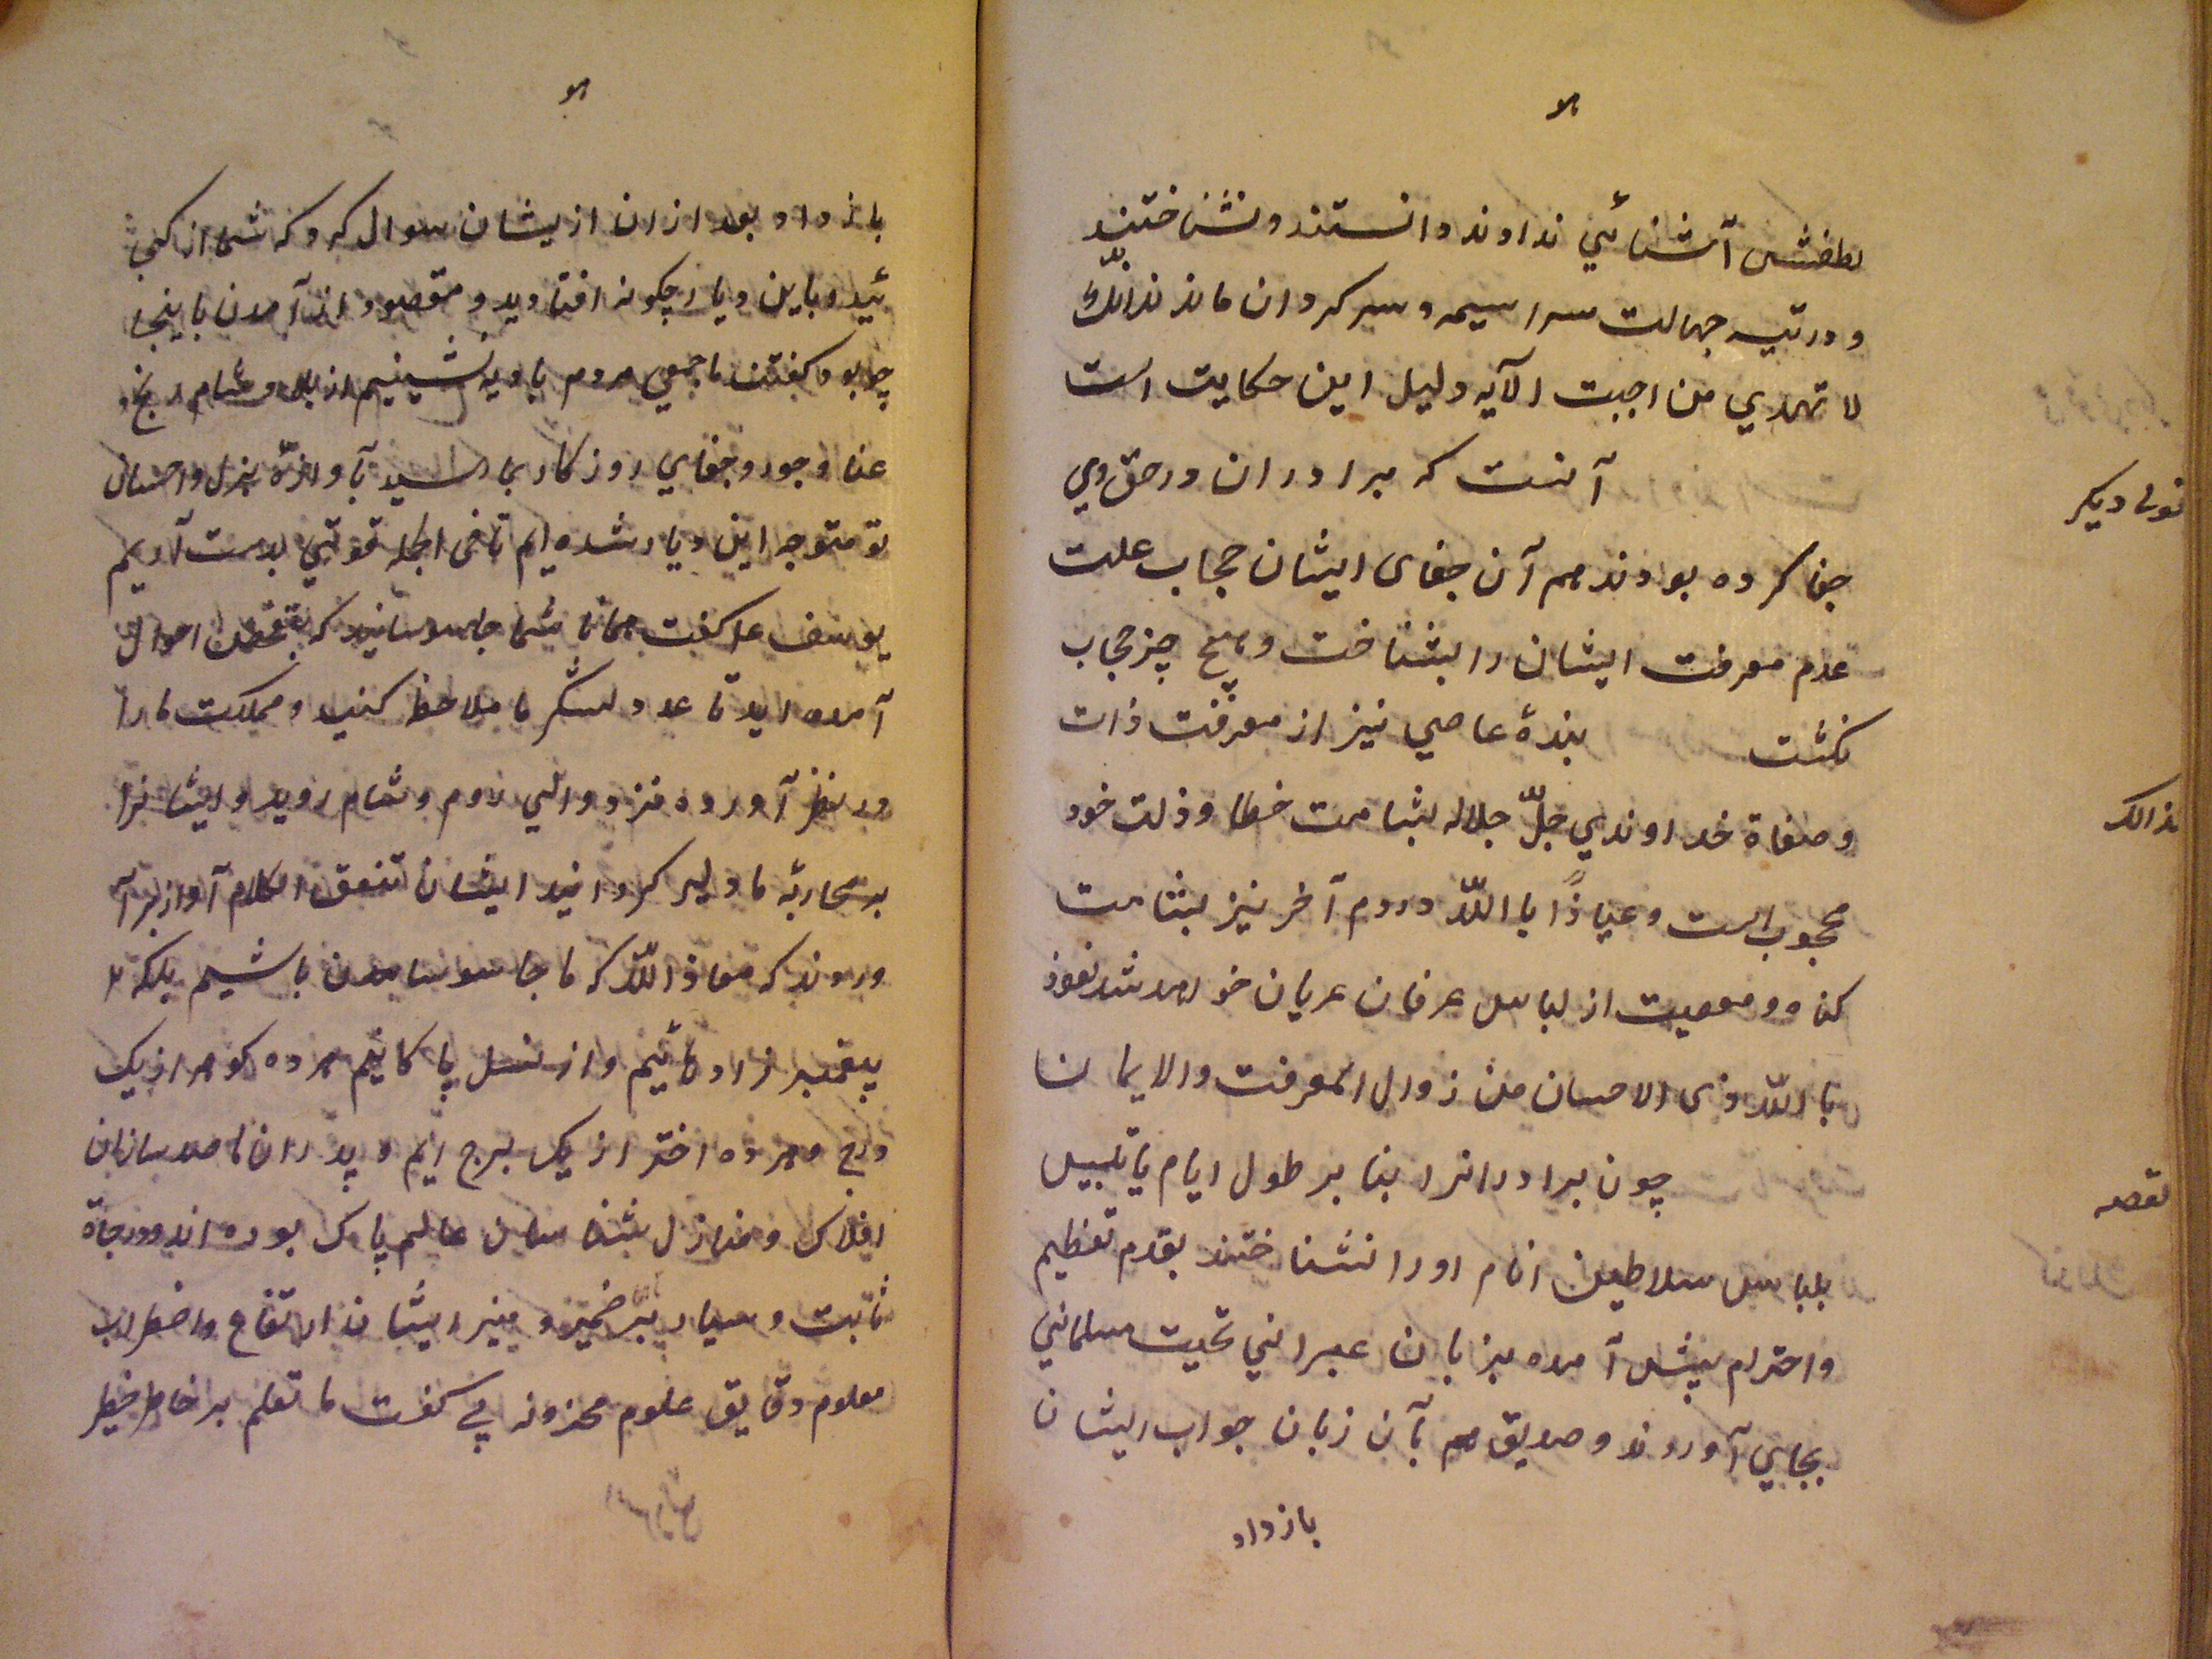 هو
لطفش آشنائي ندادند دانستند و نشناختند
و در تیه جهالت سراسیمه و سرکردان ماندند انّك
لا تهدي من احببت الآیه دلیل این حکایت است
قولی دیکر
آنست که برادران در حق وي
جفا کرده بودند هم آن جفای ایشان حجاب علت
عدم معرفت ایشان را بشناخت و هیچ چیز حجاب
نکشت بندهٔ عاصي نیز از معرفت ذات
کذالک
و صفاة خداوندي جلّ جلاله بشامت خطا و ذلت خود
محجوب است و عیاذًا باالله در دم آخر نیز بشامت
کناه و معصیت از لباس عرفان عریان خواهد شد نعوذ
باالله ذی الاحسان من زوال المعرفت والایمان
القصه
چون برادرانرا بنا بر طول ایام یا تلبیس
بلباس سلاطین انام او را نشناختند بقدم تعظیم
و احترام پیش آمده بزبان عبراني تحیت مسلماني
بجاي آوردند و صدیق هم بآن زبان جواب ایشان
باز داد
هو
باز داد بعد ازان ازیشان سوال کرد که شما از کجی
ئید و باین دیار چکونه افتادید و مقصود از آمدن باینجا
چه بود کفتند ما جمعي مردم بادیه نشینیم از بلاد شام رنج و
عنا و جور و جفاي روزکار بما رسید بآوازهٔ بذل و احسان
تو متوجه این دیار شده ایم تا فی الجمله قوتي بدست آریم
یوسف ع کفت همانا شما جاسوسانید که بتفحص احوال
آمده اید تا عدد لشکر ما ملاحظه کنید و مملکت ما را
در نظر آورده نزد والي روم و شام روید و ایشانرا
بر محاربهٔ ما دلیر کردانید ایشان متفق الکلام آواز برآ
وردند که معاذ الله که ما جاسوسان باشیم بلکه ما
پیغمبر زاده کانیم و از نسل پاکانیم هر ده کوهر از یک
درج و هر ده اختر از یک برج ایم و پدران ما
افلاک و منازل شناسان عالم پاک بوده اند و درجاة
ثابت و سیار بر ضمیر منیر ایشان ارتفاع و اضطراب
معلوم دقایق علوم مخزونه في کفت ما تعلم بر خاطر خطیر